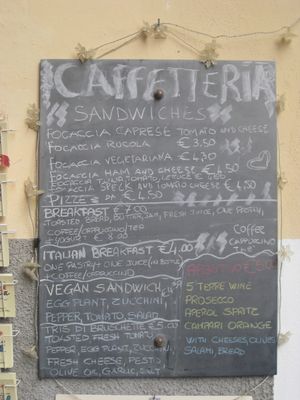 CAFFETTERIA
SANDWICHES
FOCACCIA CAPRESE TOMATO AND CHEESE
FOCACCIA RUCOLA € 3.50
FOCACCIA VEGETARIANA € 4.30
FOCACCIA HAM AND CHEESE € 4,50
FOCACCIA TUNA, TOMATO, LETUCE
FOCACCIA SPECK AND TOMATO CHEESE € 4,50
PIZZE DA € 4,50
BREAKFAST 7.00
TOASTED BREAD, BUTTER, JAM, FRESH JUICE, ONE PASTRY,
COFFEE/CAPPUCCINO/TEA
+ YOGHURT € 8.00
ITALIAN BREAKFAST € 4.00
ONE PASTRY, ONE JUICE (IN BOTTLE)
COFFEE/CAPPUCCINO
COFFEE
CAPPUCCINO
THE
VEGAN SANDWICH
EGG PLANT, ZUCCHINI,
PEPPER, TOMATO, SALAD
TRIS DI BRUSCHETTE € 5.00
TOASTED FRESH TOMATO
PEPPER, EGG PLANT, ZUCCHINI,
FRESH CHEESE, PESTO,
OLIVE OIL, GARLIC, SALT
5 TERRE WINE
PROSECCO
APEROL SPRITZ
CAMPARI ORANGE
WITH CHEESES, OLIVES
SALAMI, BREAD